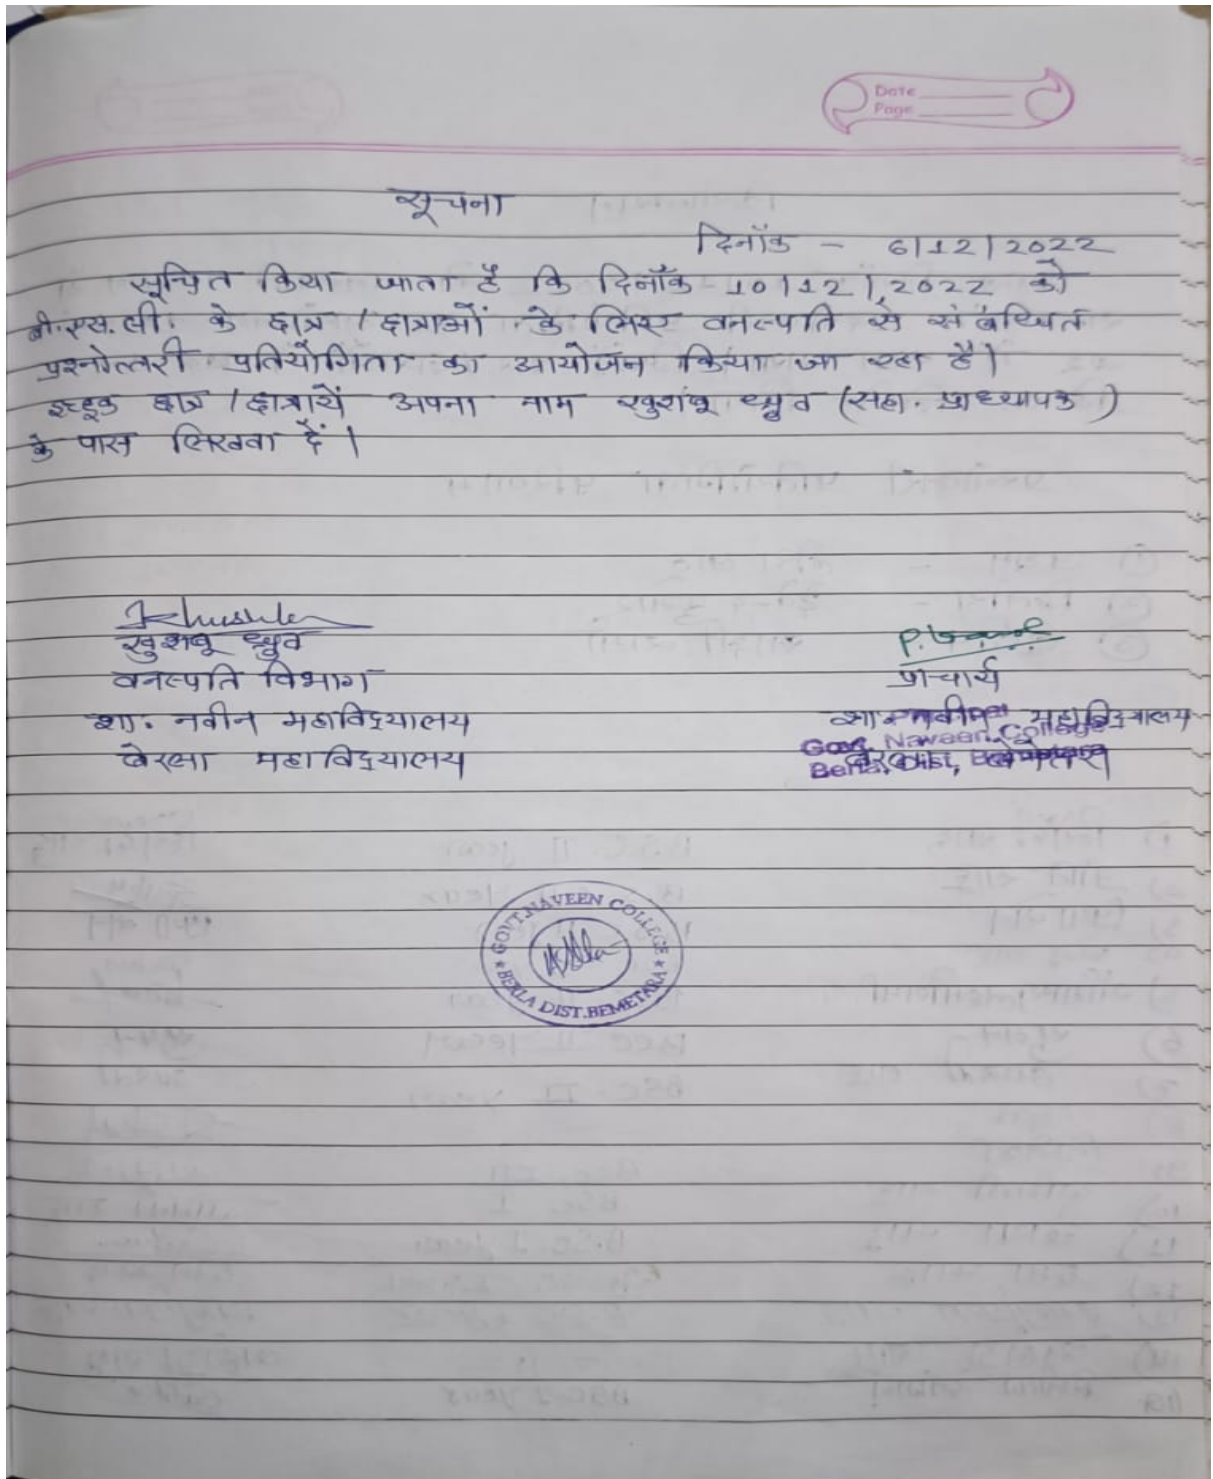 Date
Page
सूचना
दिनॉंक - 6/12/2022
सूचित किया जाता है कि दिनॉंक 10/12/2022 को
बी.एस.सी. के छात्र / छात्राओं के लिए वनस्पति से संबंधित
प्रश्नोत्तरी प्रतियोगिता का आयोजन किया जा रहा है।
इच्छुक छात्र / छात्रायें अपना नाम खुशबू ध्रुव (सहा. प्राध्यापक)
के पास लिखवा दें।
खुशबू ध्रुव
वनस्पति विभाग
शा. नवीन महाविद्यालय
बेरला महाविद्यालय
प्राचार्य
शा. नवीन महाविद्यालय
Govt. Naveen College
Berla, Dist,
GOVT. NAVEEN COLLEGE
BERLA DIST. BEMETARA